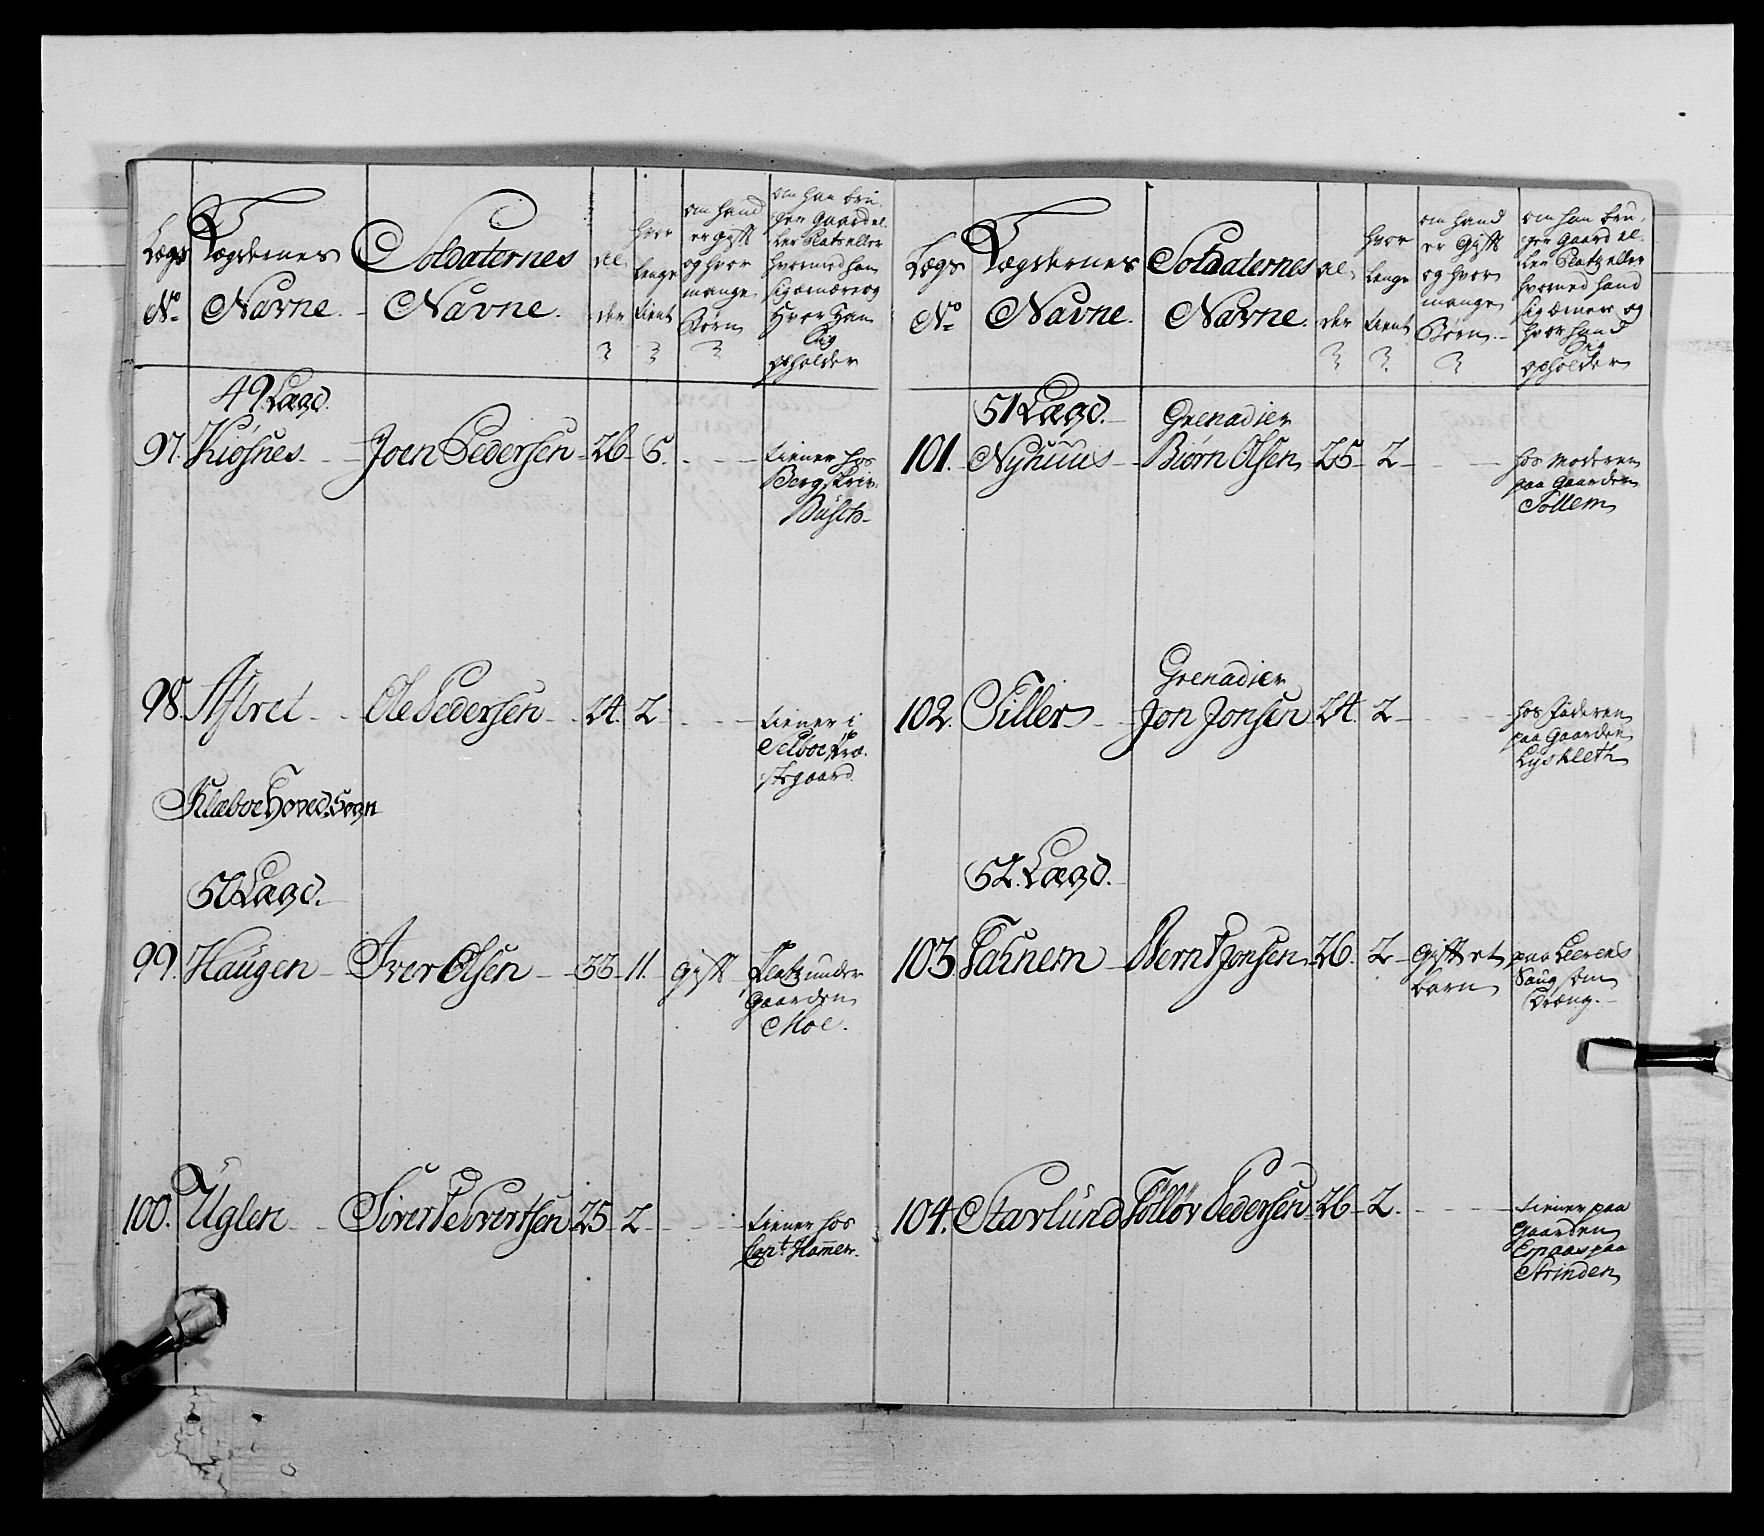 Lægs
No
Lægdernes
Navne.
Soldaternes
Navne.
al-
der
?
hvor
lenge
tient
?
om hand
er gift
og hvor
mange
Børn
?
om han bru-
ger Gaard el-
ler Platz eller
hvormed han
sig ærnære og
Hvor Han
Sig
opholder
49 Lægd.
97. Kiøsnes - Joen Pedersen - 26 - 6. - - -
tiener hos
Bergskriv.
Busch -
98. Aftret - Ole Pedersen - 24. 2 - - -
tiener i
Selboe Præ-
stegaard.
Klæboe Hoved Sogn
50 Lægd.
99. Haugen - Iver Olsen - 33 - 11. gift
Platz under
Gaarden
Moe.
100. Uglen - Siver Sivertsen 25 - 2 - - -
tiener hos
Capt. Hammer.
Lægs
No
Lægdernes
Navne.
Soldaternes
Navne.
al-
der
?
hvor
lenge
tient
?
om hand
er gift
og hvor
mange
Børn -
?
om han bru-
ger Gaard el-
ler Platz eller
hvormed hand
sig ærner og
hvor hand
Sig
opholder
51 Lægd.
Grenadier
101. Nyhuus - Biørn Olsen 25 - 2 - - -
hos Moderen
paa Gaarden
Tøllem
Grenadier
102. Tiller - Jon Jonsen 24. 2 - - -
hos Faderen
paa Gaarden
Lyskleth
52. Lægd.
103. Tahnem - Bernt Jonsen 26. 2 - gift et
barn
paa Leerens
Saug som
Dræng. -
104. Starlund Tølløv Pedersen 26 - 2. - - -
tiener paa
Gaarden
paa
Strinden